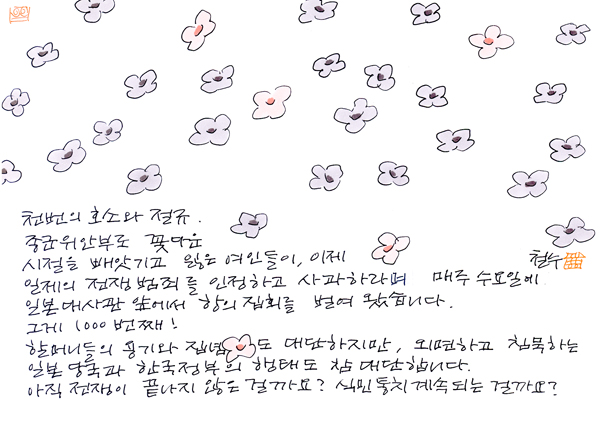 천번의 호소와 절규.
종군위안부로 꽃다운
시절을 빼앗기고 잃은 여인들이, 이제
일제의 전쟁범죄를 인정하고 사과하라며 매주 수요일에
일본대사관 앞에서 항의집회를 벌여 왔습니다.
그게 1000 번째!
할머니들의 용기와 집념도 대단하지만, 외면하고 침묵하는
일본 당국과 한국정부의 행태도 참 대단합니다.
아직 전쟁이 끝나지 않은 걸까요? 식민통치 계속되는 걸까요?
철수